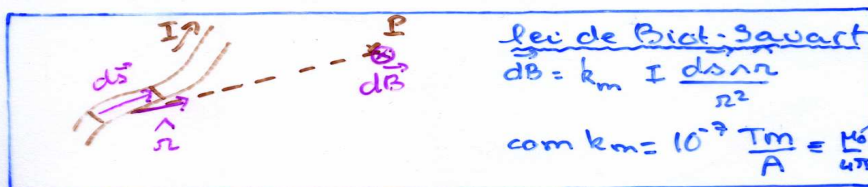 I P
ds⃗
r̂
dB⃗
lei de Biot-Savart
dB⃗ = km I ds⃗ ∧ r̂ / r²
com km = 10⁻⁷ Tm/A = μ0/4π